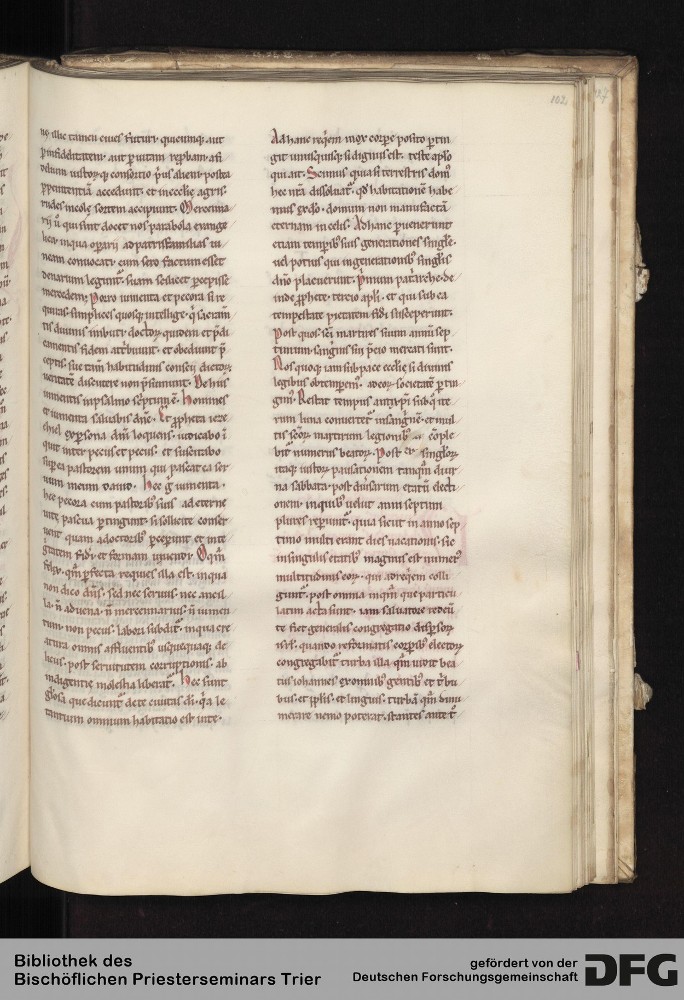 102
illic tamen cives futuri quicumq; aut
aut p vitam
consortio
accedunt et in ecclie agris
rudes incole sortem accipiunt. Mercenna
rii u qui sint docet nos parabola evange
lica in qua oparii ad patrisfamilias vi
neam convocati cum sero factum esset
denarium legunt. suam scilicet pcepisse
mercedem. Porro iumenta et pecora si re
quiras. simplices quosq; intellige. q sacram
tis divinis imbuti doctor quidem et pdi
cantis fidem attribuunt et obediunt p
ceptis
veritate discutere non psumunt. De his
iumentis in psalmo septimne. Homines
et iumenta salvabis dne. Et ppheta ieze
chiel ex psona dni loquens. iudicabo i
quit inter pecus et pecus. et suscitabo
sup ea pastorem unum qui pascat ea ser
vum meum david. Hec g iumenta.
hec pecora cum pastoribs suis ad eterne
vite pascua ptingunt. si sollicite conser
vent quam a doctoribs pceperunt et inte
gritatem fidei et formam vivendi. O qm
felix. qm pfecta requies illa est. in qua
non dico dns. sed nec servus. nec ancil
la. n advena. n mercennarius. n iumen
tum. non pecus. labori subdit. in qua cre
atura omnis affluentibs usquequaq; de
liciis. post servitutem corruptionis. ab
indigentie molestia liberat. Hec sunt
gliosa que dicunt de te civitas di. qa le
tantium omnium habitatio est in te.
Ad hanc reqem mox corpe posito ptin
git unusquisq; si dignus est. teste aplo
qui ait. Scimus quia si terrestris dom
hec nra dissolvat. qd habitatione habe
mus ex do. domum non manufacta
eternam in celis. Ad hanc pvenerunt
etiam temporibs suis generationes singule
vel potius qui in generationibs singlis
dno placuerunt. Primum patriarche. de
inde pphete. tercio apli. et qui sub ea
tempestate pietatem fidei susceperunt.
Post quos sci martires suum annum sep
timum sanguis sui pcio mercati sunt.
Nos quoq; iam sub pace ecclie si divinis
legibus obtempem. ad eor societate ptin
gim. Restat tempus antixpi sub q ite
rum luna convertet in sanguine. et mul
tis scor martirum legionibs cople
bit numerus beator. Post singlor
itaq; iustor pausationem tanqm diur
na sabbata. post divisarum etatu dilecti
onem in quibus velut anni septimi
plures repiunt. quia sicut in anno sep
timo multi erant dies vacationis. sic
in singulis etatibs magnus est numer
multitudinis eor. qui ad reqem colli
gunt. post omnia inqm que particu
latim acta sunt. iam salvatore redeun
te fiet generalis congregatio dispsor
isrl. quando reformatis corpibs elector
congregabit turba illa. qm vidit bea
tus iohannes ex omnibs gentibs et tribu
bus. et pplis. et linguis. turba qm dinu
merare nemo poterat. stantes ante t
Bibliothek des
Bischöflichen Priesterseminars Trier
gefördert von der
Deutschen Forschungsgemeinschaft
DFG